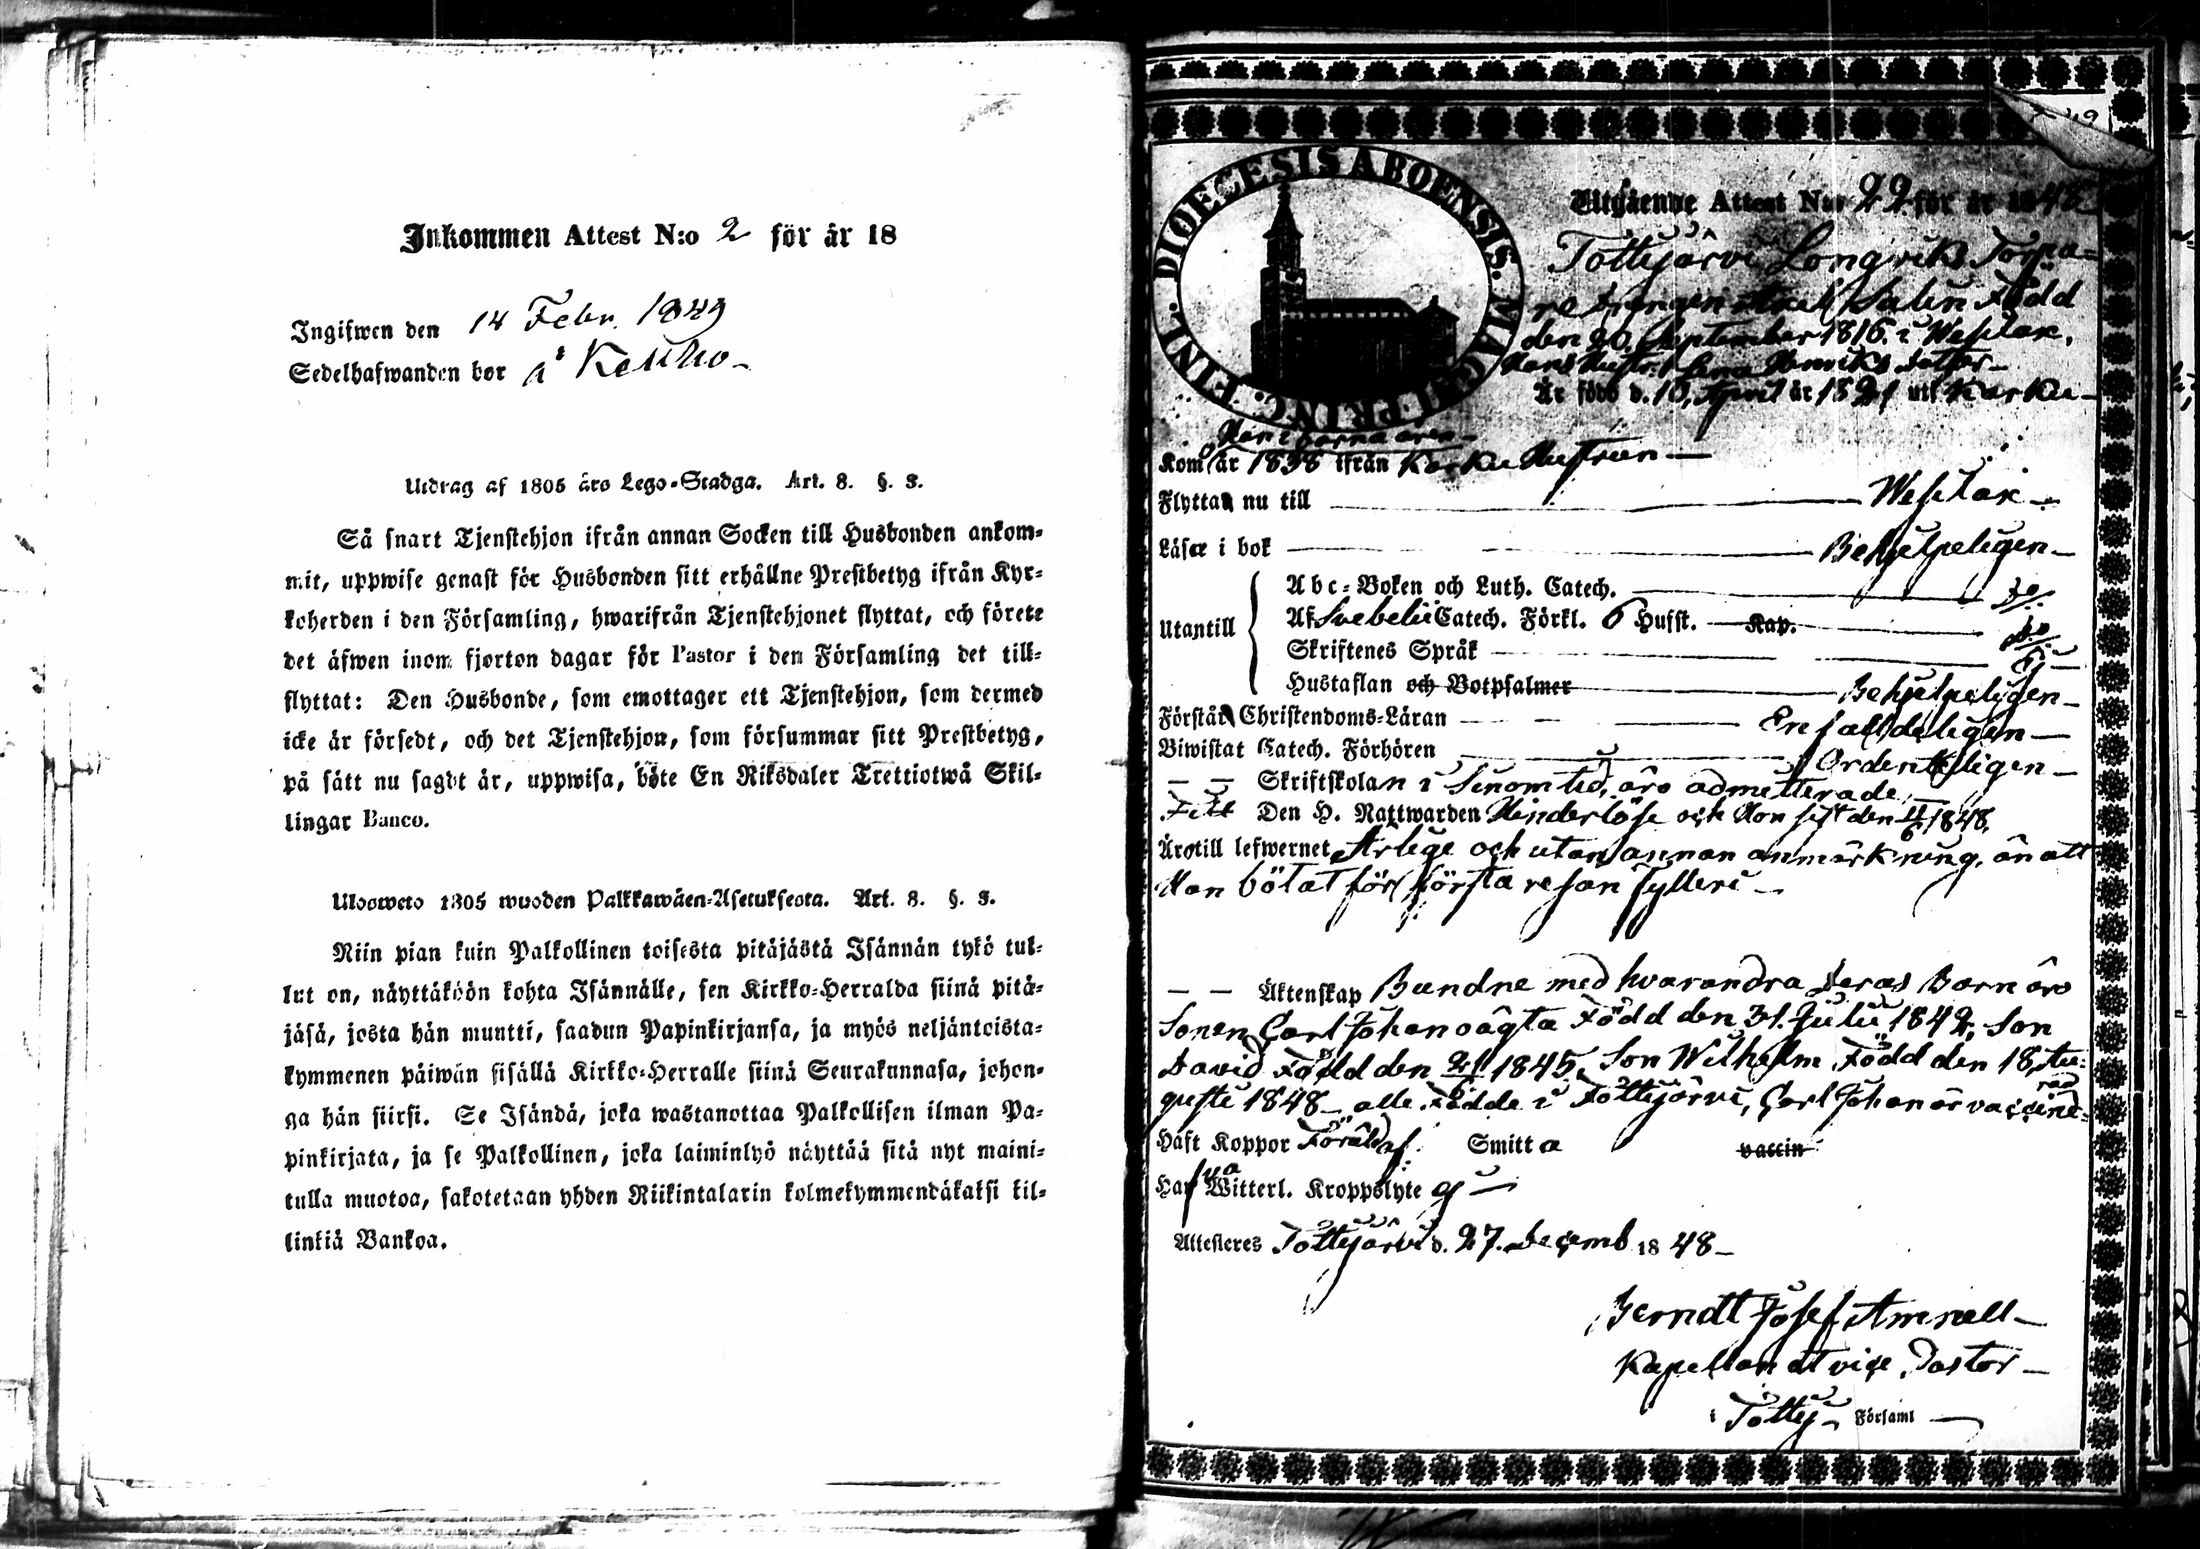 Inkommen Attest N:o 2 för år 18
Ingifwen den 14 Febr. 1849
Sedelhafwanden bor å
Utdrag af 1805 års Lego-Stadga. Art. 8. §. 3.
Så snart Tjenstehjon ifrån annan Socken till Husbonden ankom-
mit, uppwise genast för Husbonden sitt erhållne Prestbetyg ifrån Kyr-
koherden i den Församling, hwarifrån Tjenstehjonet flyttat, och förete
det äfwen inom fjorton dagar för Pastor i den Församling det till-
flyttat: Den Husbonde, som emottager ett Tjenstehjon, som dermed
icke är försedt, och det Tjenstehjon, som försummar sitt Prestbetyg,
på sätt nu sagdt är, uppwisa, böte En Riksdaler Trettiotwå Skil-
lingar Banco.
Uloosweto 1805 wuoden Palkkawäen-Asetuksesta. Art. 8. §. 3.
Niin pian kuin Palkollinen toisesta pitäjästä Isännän tykö tul-
lut on, näyttäköön kohta Isännälle, sen Kirkko-Herralda siinä pitä-
jäsä, josta hän muutti, saadun Papinkirjansa, ja myös neljäntoista-
kymmenen päiwän sisällä Kirkko-Herralle siinä Seurakunnasa, johon-
ga hän siirsi. Se Isändä, joka wastanottaa Palkollisen ilman Pa-
pinkirjata, ja se Palkollinen, joka laiminlyö näyttää sitä nyt maini-
tulla muotoa, sakotetaan yhden Riikintalarin kolmekymmendäkaksi kil-
linkiä Bankoa.
DIOECESIS ABOENSIS. MAGNI PRINC. FINL.
Utgående Attest N:o 22 för år 1848
Tottijärvi Longviks Torpa-
re Drängen Axel Salin Född
den 20. September 1816. i Wesilax.
Hans Hustru Lena Henriks dotter
Är född d. 10. April år 1821 uti Karku
Han i barna åren
Kom år 1838 ifrån Karku Hustrun
Flytta nu till Wesilax
Läser i bok Behjelpeligen
Utantill
Abc-Boken och Luth. Catech. do.
Af Svebelii Catech. Förkl. 6 Hufst. Kap. do.
Skriftenes Språk Ej
Hustaflan och Botpsalmer Behjelpeligen
Förstå Christendoms-Läran Enfalldeligen
Biwistat Catech. Förhören Ordenteligen
Skriftskolan i Sinom tid, äro admitterade
Den H. Nattwarden Hinderlöse och Hon sist den 1848.
Äro till lefwernet Ärlige och utan annan anmärkning, än att
Han bötat för första resan fylleri
Äktenskap Bundne med hvarandra deras Barn äro
Sonen Carl Johan oägta Född den 31. Julii 1842, Son
David Född den 1845, Son Wilhelm Född den 18, Au-
gusti 1848 alle Födde i Tottijärvi, Carl Johan är vaccine-
rad
Haft Koppor Föräld. af. Smitta vaccin
Hafva Witterl. Kroppslyte ej
Attesteres Tottijärvi d. 27. Decemb 1848
Berndt Josef Amnell
Kapellan et vice Pastor
i Tottij Församl